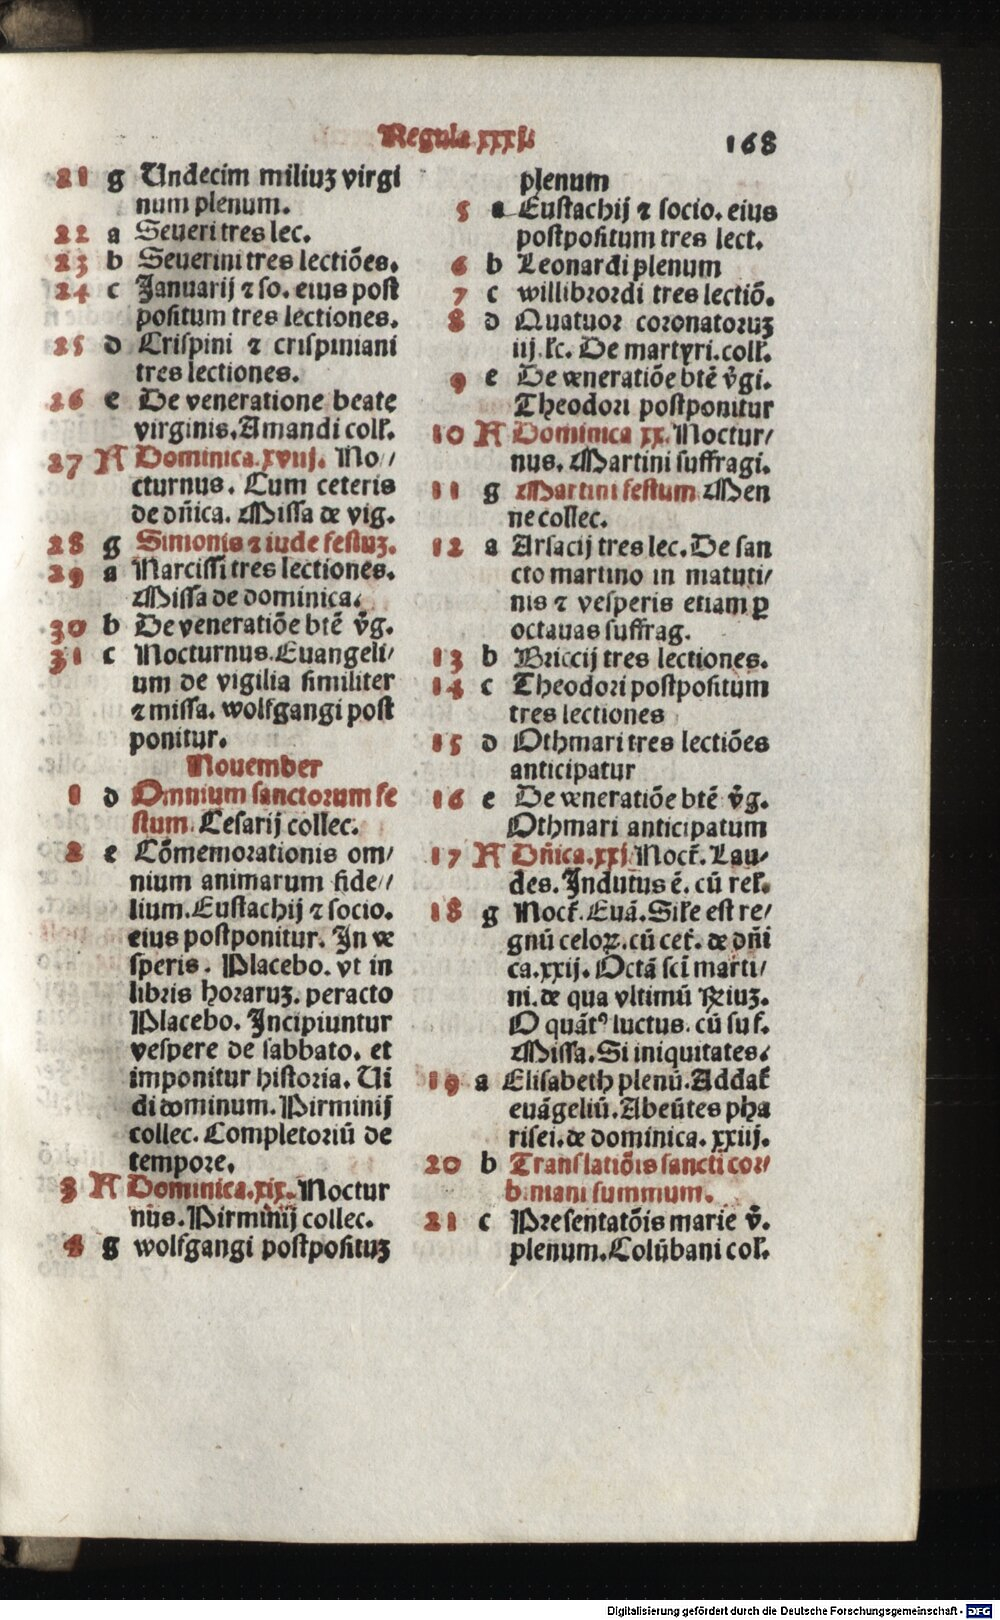 Regula xxxj.
168
21 g Undecim miliuꝫ virgi
num plenum.
22 a Seueri tres lec.
23 b Seuerini tres lectiões.
24 c Januarij ⁊ so. eius post
positum tres lectiones.
25 d Crispini ⁊ crispiniani
tres lectiones.
26 e De veneratione beate
virginis. Amandi coll'.
27 A Dominica.xviij. No//
cturnus. Cum ceteris
de dñica. Missa de vig.
28 g Simonis ⁊ iude festuꝫ.
29 a Narcissi tres lectiones.
Missa de dominica.
30 b De veneratiõe btẽ v̄g.
31 c Nocturnus. Euangeli/
um de vigilia similiter
⁊ missa. wolfgangi post
ponitur.
Nouember
1 d Omnium sanctorum fe
stum. Cesarij collec.
2 e Cõmemorationis om/
nium animarum fide//
lium. Eustachij ⁊ socio.
eius postponitur. In ve
speris. Placebo. vt in
libris horaruꝫ. peracto
Placebo. Incipiuntur
vespere de sabbato. et
imponitur historia. Ui
di dominum. Pirminij
collec. Completoriũ de
tempore.
3 A Dominica.xix. Noctur
nus. Pirminij collec.
4 g wolfgangi postposituꝫ
plenum
5 a Eustachij ⁊ socio. eius
postpositum tres lect.
6 b Leonardi plenum
7 c willibrordi tres lectiõ.
8 d Quatuor coronatoruꝫ
iij. lc. De martyri. coll'.
9 e De veneratiõe btẽ v̄gi.
Theodori postponitur
10 A Dominica xx. Noctur/
nus. Martini suffragi.
11 g Martini festum. Men
ne collec.
12 a Arsacij tres lec. De san
cto martino in matuti/
nis ⁊ vesperis etiam ꝑ
octauas suffrag.
13 b Briccij tres lectiones.
14 c Theodori postpositum
tres lectiones
15 d Othmari tres lectiões
anticipatur
16 e De veneratiõe btẽ v̄g.
Othmari anticipatum
17 A Dñica.xxj Noct'. Lau-
des. Indutus ẽ. cũ rel'.
18 g Noct'. Euã. Sil'e est re/
gnũ celoꝝ. cũ cet'. de dñi
ca. xxij. Octã sci marti/
ni. de qua vltimũ ꝶiuꝫ.
O quãtꝰ luctus. cũ suf.
Missa. Si iniquitates.
19 a Elisabeth plenũ. Addat'
euãgeliũ. Abeũtes pha
risei. de dominica. xxiij.
20 b Translatiõis sancti cor/
biniani summum.
21 c Presentatõis marie v̄.
plenum. Colũbani col'.
Digitalisierung gefördert durch die Deutsche Forschungsgemeinschaft - DFG